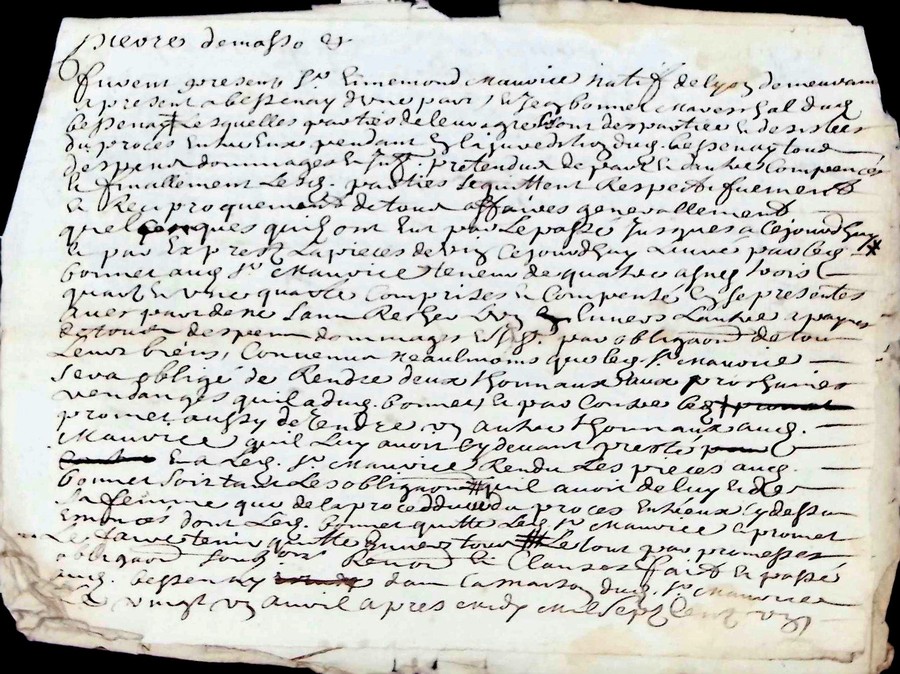 pierre demasso &
furent presents Sr Ennemond Maurice natif de lyon demeurant
a present a bessenay d'une part Et Jean bonnet Mareschal dud
bessenay Lesquelles parties de leur gre se sont despartie & desistées
du proces Entre Eux pendant En la juredi͞on dud. bessenay tous
despens dommages & pretendus de part & dautre Compencés
Et finallement Lesd. parties se quittent Respectifuement
& Reciproquement de tous affaires generallement
quelconques quils ont Eut par Le passé Jusques a Cejourdhuy
Et par Expres La pieces de vin Cejourdhuy Liuré par led
bonnet aud Sr Maurice teneur de quatre asnes trois
quart & vne quarte Comprises & Compensé Es presentes
dans Lautre a paynes
de tous despens dommages par obliga͞on de tous
Leurs biens, Convenus neaulmoins que led. Sr Maurice
sera obligé de Rendre deux thonnaux aux prochaines
vendanges quil a dud. bonnet, Et par Contre led
promet aussy de rendre un autre thonnaux aud.
Maurice quil Luy avoit Cy devant presté
Et a Led. Sr Maurice Rendu Les pieces aud.
bonnet soit tant Les obliga͞on quil avoit de luy & de
sa femme que de la procedure du proces Entreux Cy dessus
Ennoncés dont Led. bonnet quitte Led. Sr Maurice & promet
Le faire tenir quitte Enuers tous Le tout par promesses
obliga͞on Renon͞ & Clauses fait & passé
aud. bessenay dans La maison dud. Sr Maurice
Le vingt un avril apres midy Mil sept Cent